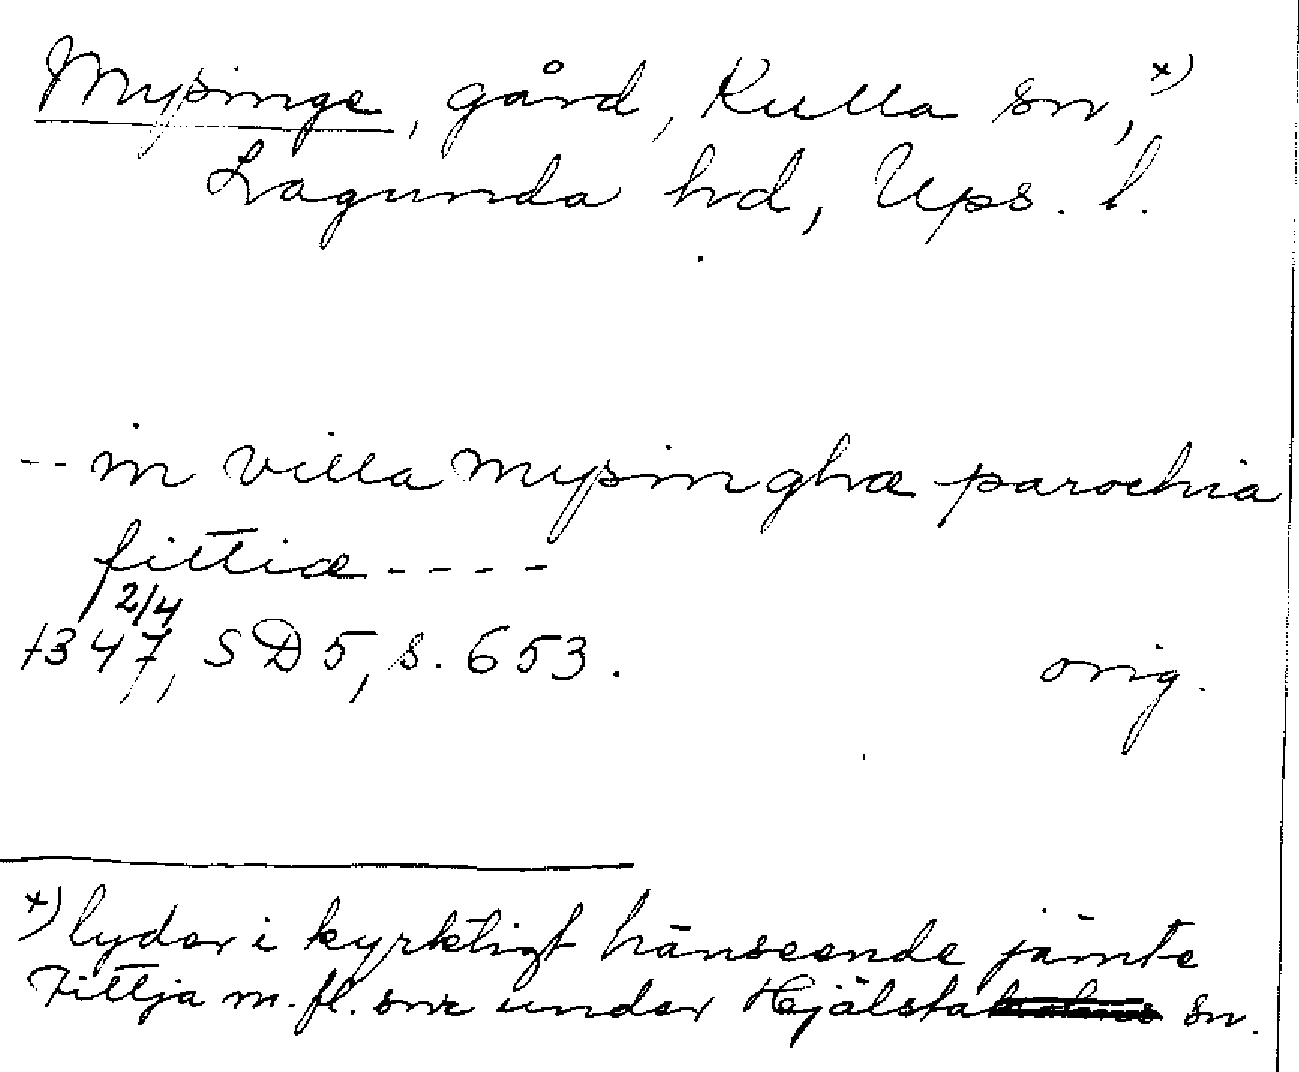 Mypinge, gård, Kulla sn, x)
Lagunda hd, Ups. l.
-- in villa mypinghæ parochia
fittiæ ----
2/4
1347, SD 5, s. 653. orig.
x) lyder i kyrkligt hänseende jämte
Fittja m. fl. snr under Hjälsta sn.